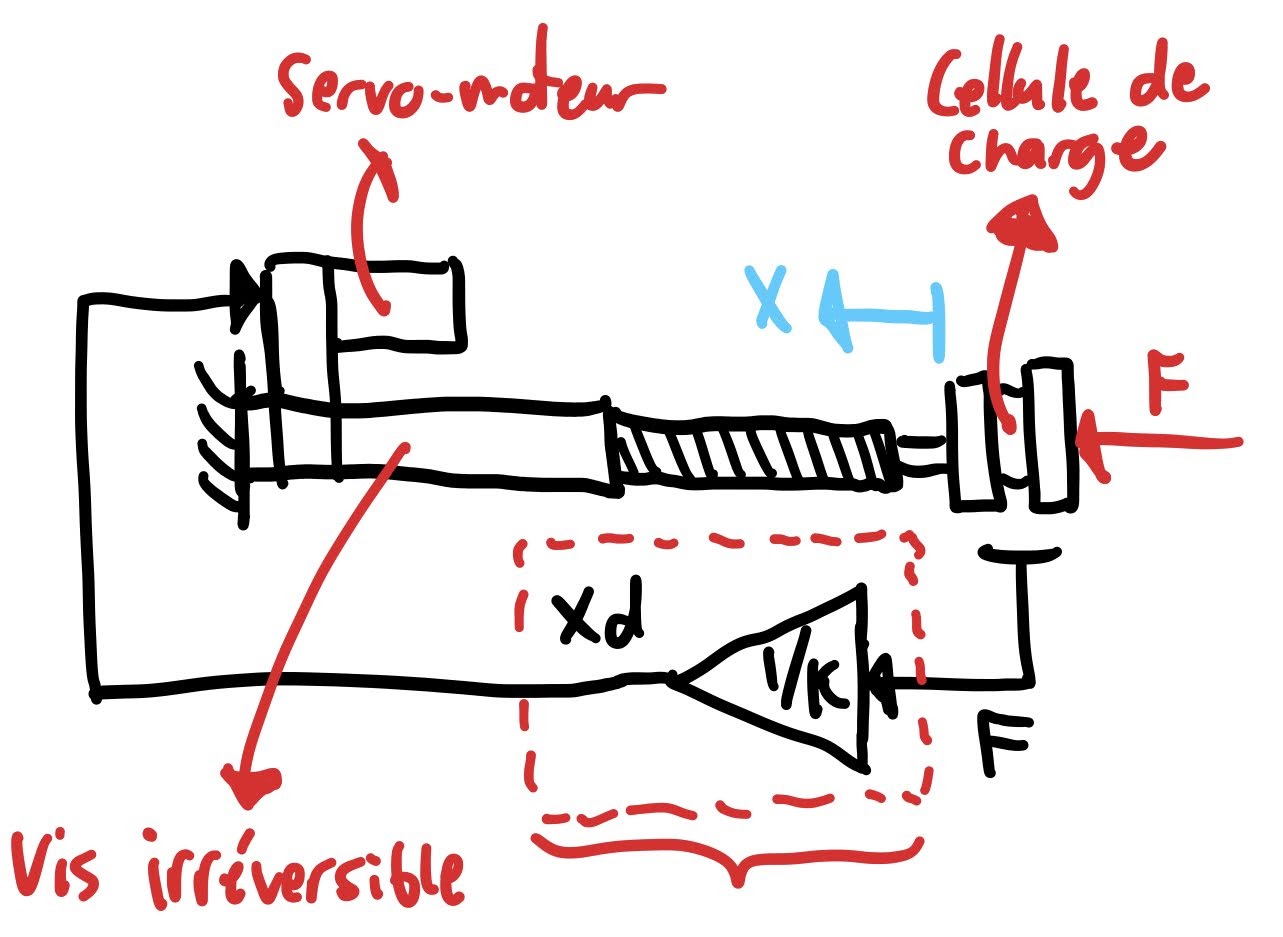 Servo-moteur
Cellule de
charge
X
F
Xd
1/K
F
Vis irréversible